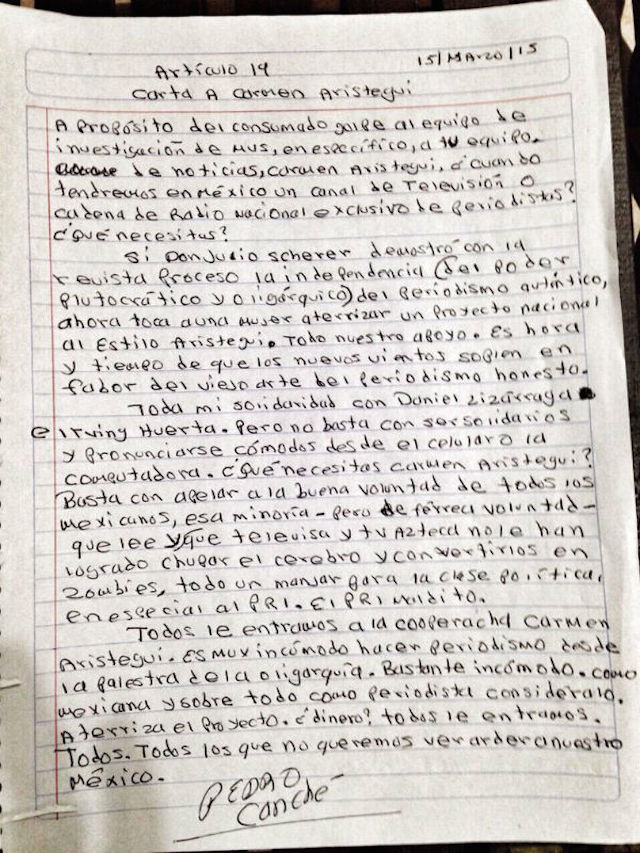 15/Marzo/15
Artículo 19
Carta A Carmen Aristegui
A propósito del consumado golpe al equipo de
investigación de MVS, en específico, a tu equipo
de noticias, Carmen Aristegui, ¿cuando
tendremos en México un canal de Televisión o
cadena de Radio Nacional exclusivo de periodistas?
¿Qué necesitas?
Si Don Julio Scherer demostró con la
revista Proceso la independencia (del poder
plutocrático y oligárquico) del periodismo auténtico,
ahora toca a una mujer aterrizar un Proyecto nacional
al Estilo Aristegui. Todo nuestro apoyo. Es hora
y tiempo de que los nuevos vientos soplen en
fabor del viejo arte del periodismo honesto.
Toda mi solidaridad con Daniel Lizárraga
e Irving Huerta. Pero no basta con ser solidarios
y pronunciarse cómodos desde el celular o la
computadora. ¿Qué necesitas Carmen Aristegui?
Basta con apelar a la buena voluntad de todos los
Mexicanos, esa minoría - pero de férrea voluntad -
que lee y que televisa y tv Azteca no le han
logrado chupar el cerebro y convertirlos en
zombies, todo un manjar para la clase política,
en especial al PRI. El PRI maldito.
Todos le entramos a la cooperacha Carmen
Aristegui. Es muy incómodo hacer periodismo desde
la palestra de la oligarquía. Bastante incómodo. como
mexicana y sobre todo como periodista consideralo.
Aterriza el Proyecto. ¿dinero? todos le entramos.
Todos. Todos los que no queremos ver arder a nuestro
México.
PEDRO
Canché